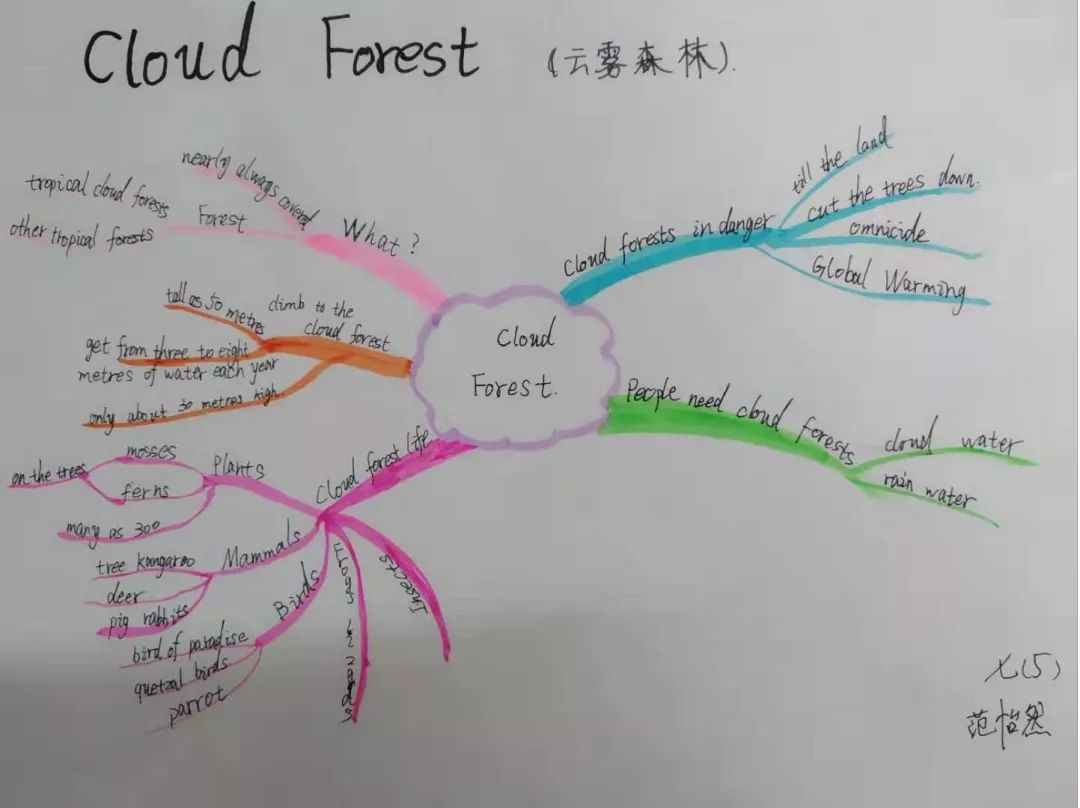 Cloud Forest (云雾森林).
nearly always covered
What?
tropical cloud forests
Forest
other tropical forests
tall as 50 metres
climb to the
cloud forest
get from three to eight
metres of water each year
only about 30 metres high.
Cloud forest life
Plants
mosses
on the trees
ferns
many as 300
Mammals
tree kangaroo
deer
pig rabbits
Birds
bird of paradise
quetzal birds.
parrot
Frogs
lizards
Insects
Cloud
Forest.
Cloud forests in danger
till the land
cut the trees down.
omnicide
Global Warming
People need cloud forests
cloud water
rain water
七(5)
范怡然